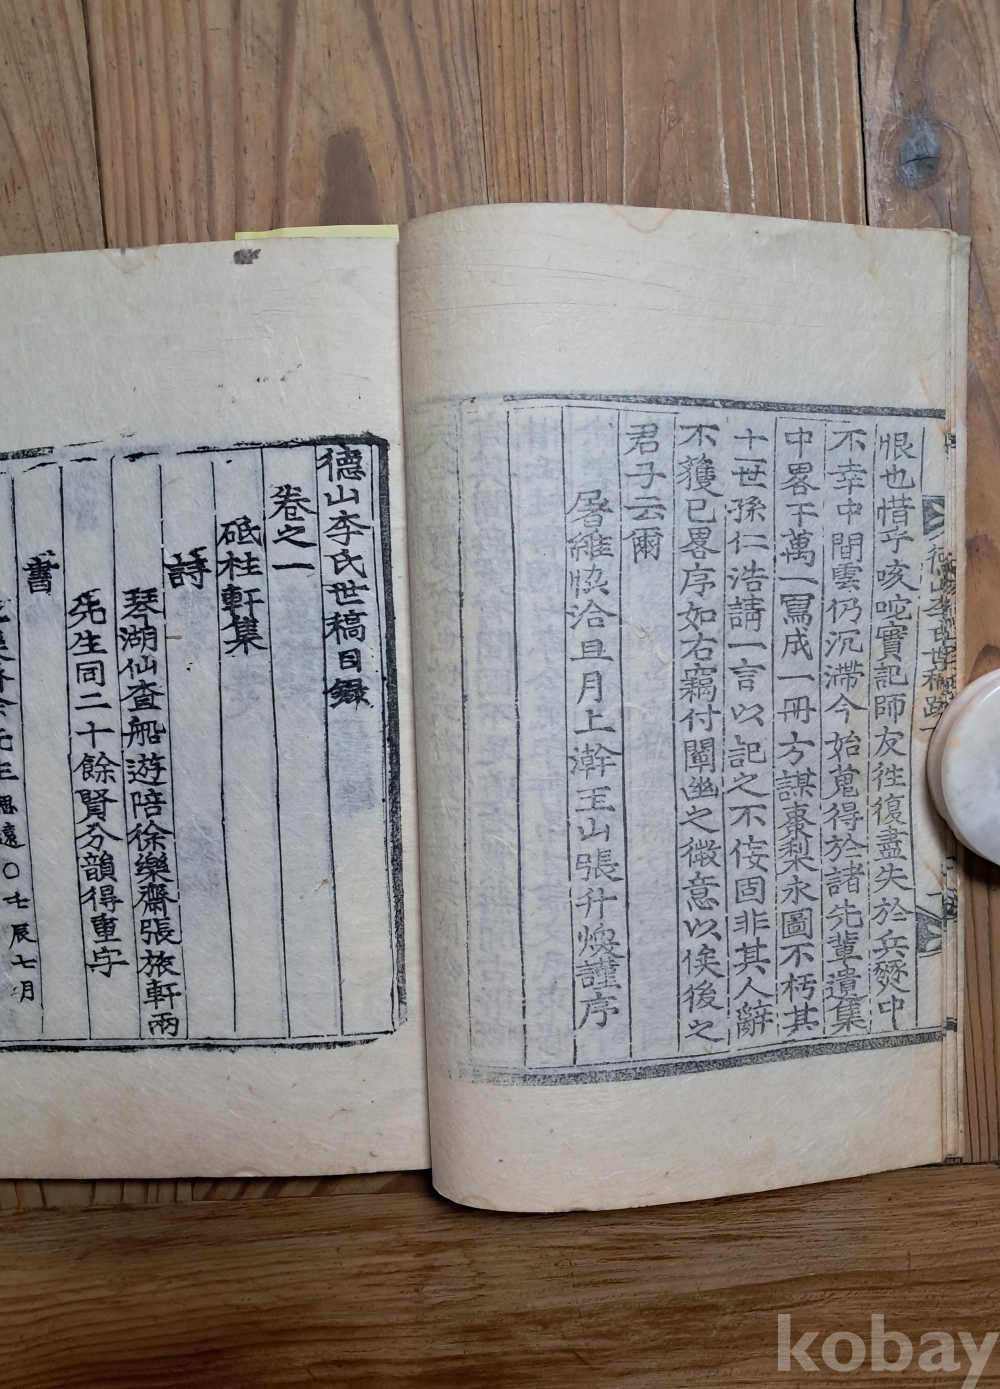 恨也惜乎咳唾實記師友往復盡失於兵燹中
不幸中間雲仍沉滯今始蒐得於諸先輩遺集
中畧干萬一冩成一冊方謀棗梨永圖不朽其
十世孫仁浩請一言以記之不侫固非其人辭
不獲已畧序如右竊付闡幽之微意以俟後之
君子云爾
屠維恊洽且月上澣玉山張升煥謹序
德山李氏世稿目錄
卷之一
砥柱軒集
詩
琴湖仙査船遊陪徐樂齋張旅軒兩
先生同二十餘賢分韻得重字
書
思遠〇壬辰七月
kobay